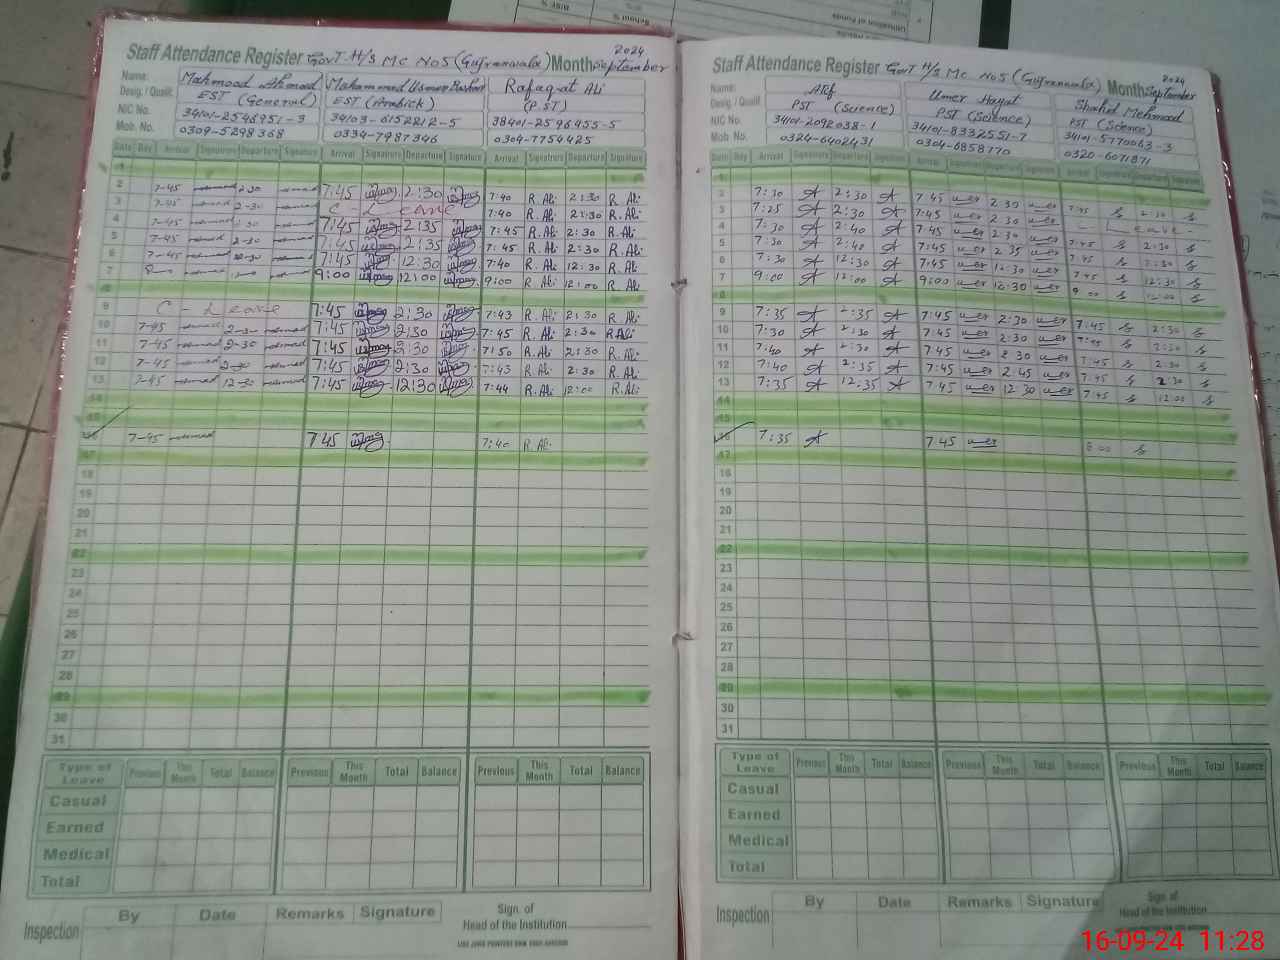 Staff Attendance Register Govt H/S MC No 5 (Gujranwala) Month September 2024
Name: Mahmood Ahmad Mohammad Usman Rafaqat Ali
Desig. / Qualif. EST (General) EST (Arabick) (P.ST)
NIC No. 34101-2546951-3 34103-6152212-5 38401-2596455-5
Mob. No. 0309-5298368 0334-7987346 0304-7754425
Date Day Arrival Signature Departure Signature Arrival Signature Departure Signature Arrival Signature Departure Signature
1
2 7-45 2-30 7:45 2:30 7:40 R.Ali 2:30 R.Ali
3 7-45 2-30 C Leave 7:40 R.Ali 2:30 R.Ali
4 7-45 2:30 7:45 2:35 7:45 R.Ali 2:30 R.Ali
5 7-45 2-30 7:45 2:35 7:45 R.Ali 2:30 R.Ali
6 7-45 12-30 7:45 12:30 7:40 R.Ali 12:30 R.Ali
7 9:00 12:00 9:00 R.Ali 12:00 R.Ali
8
9 C - Leave 7:45 2:30 7:43 R.Ali 2:30 R.Ali
10 7-45 2-30 7:45 2:30 7:45 R.Ali 2:30 R.Ali
11 7-45 2-30 7:45 2:30 7:50 R.Ali 2:30 R.Ali
12 7-45 2-30 7:45 2:30 7:43 R.Ali 2:30 R.Ali
13 7-45 12-30 7:45 12:30 7:44 R.Ali 12:00 R.Ali
14
15
16 7-45 7 45 7:40 R.Ali
17
18
19
20
21
22
23
24
25
26
27
28
29
30
31
Type of Leave Previous This Month Total Balance Previous This Month Total Balance Previous This Month Total Balance
Casual
Earned
Medical
Total
Inspection By Date Remarks Signature Sign. of Head of the Institution
Staff Attendance Register Govt H/S MC No 5 (Gujranwala) Month September 2024
Name: Atif Umer Hayat Shahid Mehmood
Desig. / Qualif. PST (Science) PST (Science) PST (Science)
NIC No. 34101-2092038-1 34101-8332551-7 34101-5770063-3
Mob. No. 0324-6402431 0304-6858770 0320-6071871
Date Day Arrival Signature Departure Signature Arrival Signature Departure Signature Arrival Signature Departure Signature
1
2 7:30 2:30 7 45 umer 2 30 umer 7:45 2:30
3 7:25 2:30 7:45 umer 2 30 umer Leave
4 7:30 2:40 7 45 umer 2 30 umer 7:45 2:30
5 7:30 2:40 7:45 umer 2 35 umer 7:45 2:30
6 7:30 12:30 7:45 umer 12:30 umer 7:45 12:30
7 9:00 12:00 9:00 umer 12:30 umer 9 00 12:00
8
9 7:35 2:35 7:45 umer 2:30 umer 7:45 2:30
10 7:30 2:30 7:45 umer 2:30 umer 7:45 2:30
11 7:40 2:30 7:45 umer 2 30 umer 7:45 2:30
12 7:40 2:35 7:45 umer 2:45 umer 7:45 2:30
13 7:35 12:35 7:45 umer 12 30 umer 7:45 12:00
14
15
16 7:35 7 45 umer 8 00
17
18
19
20
21
22
23
24
25
26
27
28
29
30
31
Type of Leave Previous This Month Total Balance Previous This Month Total Balance Previous This Month Total Balance
Casual
Earned
Medical
Total
Inspection By Date Remarks Signature Sign. of Head of the Institution
16-09-24 11:28